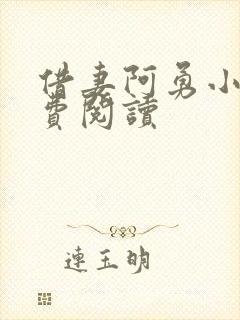 借妻阿勇小
費閱讀
連玉明